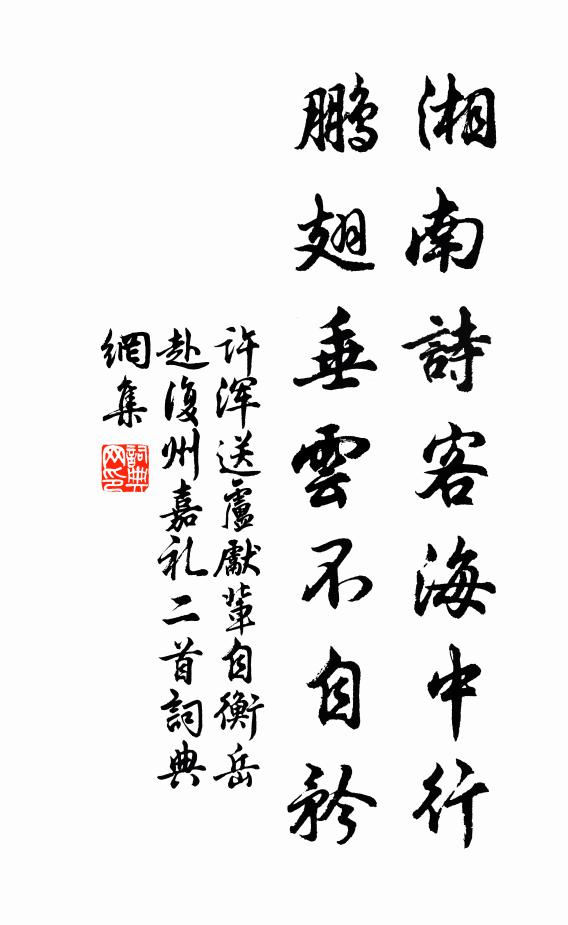 湘南詩客海中行
鵬翅垂雲不自矜
许渾送盧獻輩自衡岳
赴復州嘉礼二首詞典
網集
詞典
网印